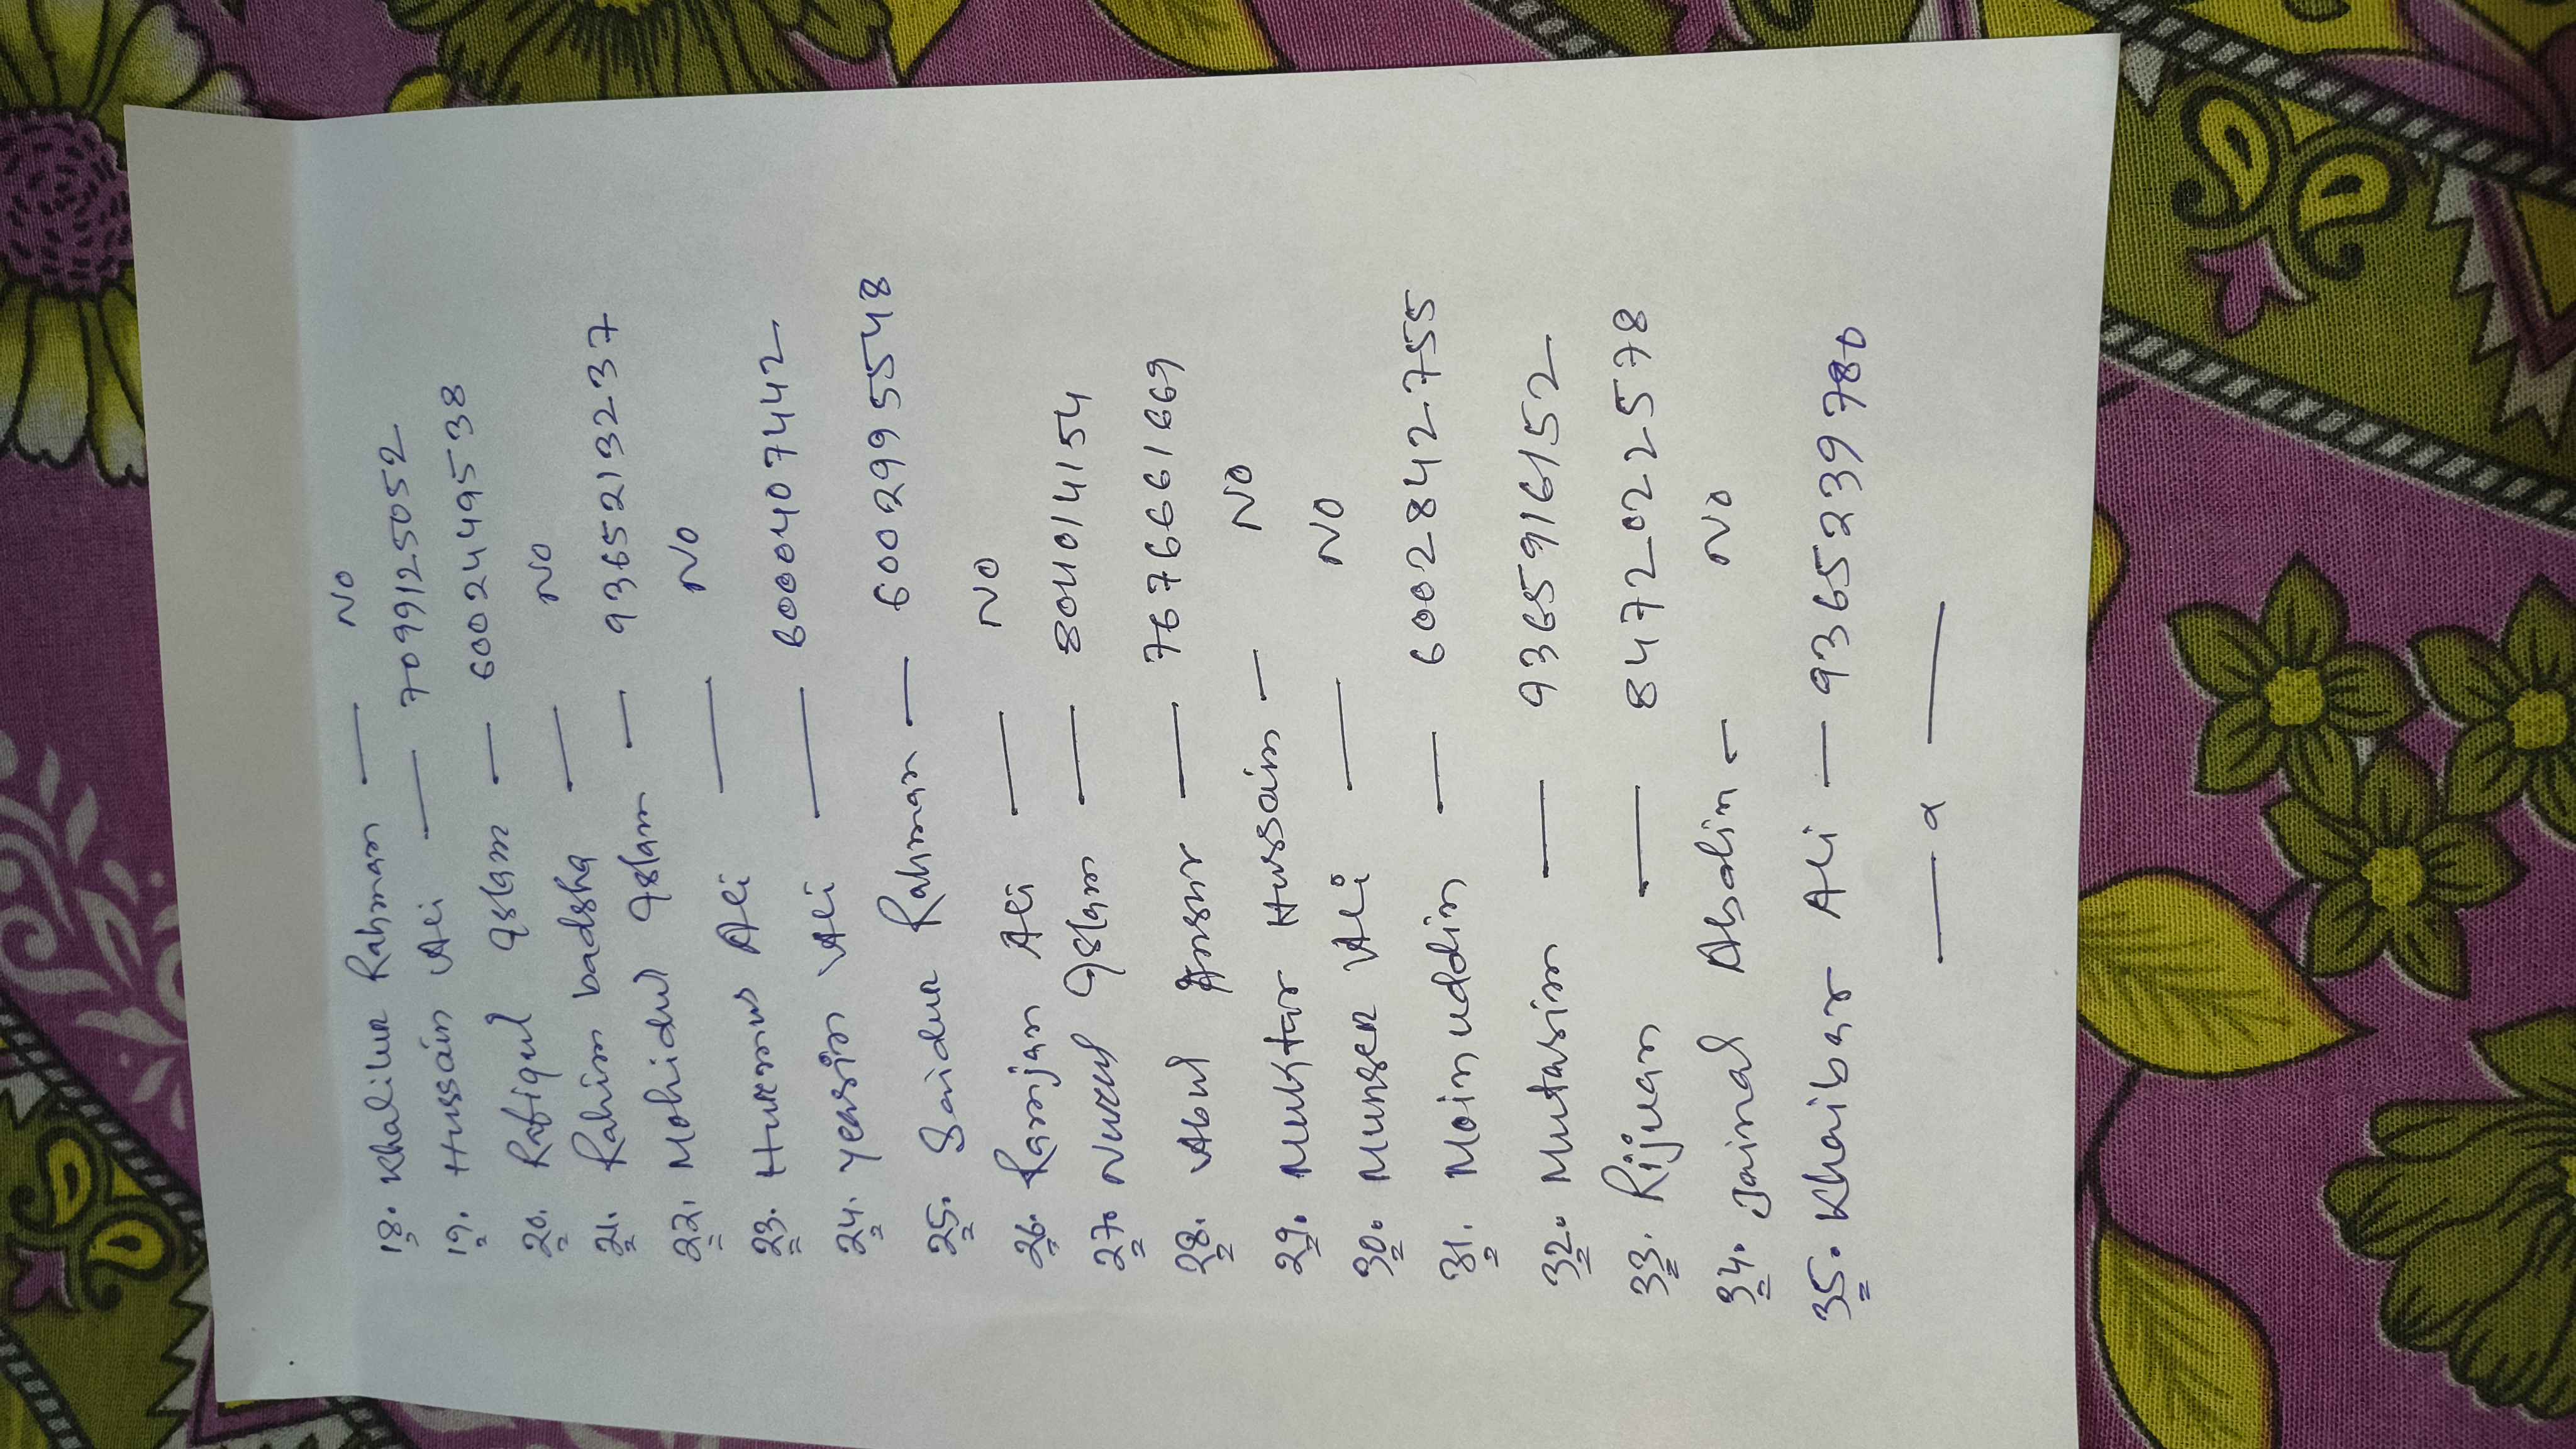 18. Khalilur Rahman — No
19. Hussain Ali — 7099125052
20. Rafiqul Islam — 6002449538
21. Rahim badsha — No
22. Mohidul Islam — 9365213237
23. Hurmus Ali — No
24. Yeasin Ali — 6000407442
25. Saidur Rahman — 6002995548
26. Ramjan Ali — No
27. Nurul Islam — 804014154
28. Abul Ansur — 7676661669
29. Mukhtar Hussain — No
30. Munser Ali — No
31. Moinuddin — 6002842755
32. Mutasim — 9365916152
33. Rijuan — 8472022578
34. Jainal Absalin — No
35. Khaibar Ali —